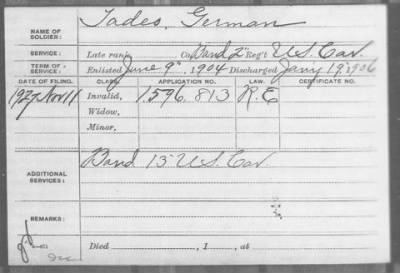 NAME OF SOLDIER: Tadeo, German
SERVICE: Late rank, Co. Band 2" Reg't U.S. Cav.
TERM OF SERVICE: Enlisted June 9", 1904 Discharged Jan'y 19", 1906
DATE OF FILING. CLASS. APPLICATION NO. LAW. CERTIFICATE NO.
1927 Nov 11 Invalid, 1,596,813 R.E
Widow,
Minor,
ADDITIONAL SERVICES: Band 15" U.S. Cav.
REMARKS:
Died , 1 , at